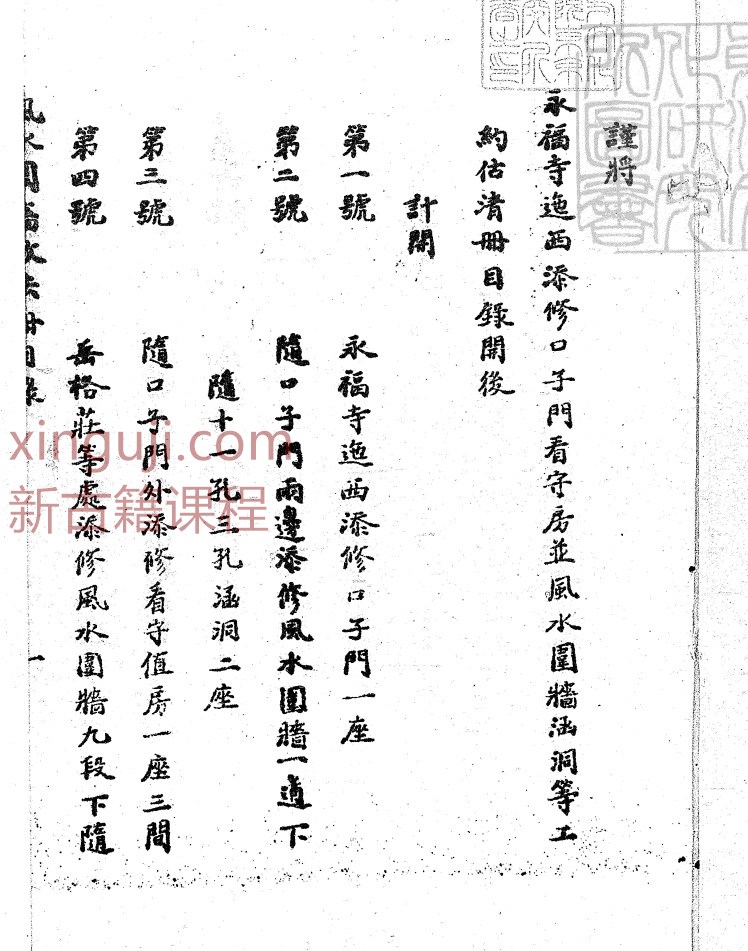 謹將
永福寺迤西添修口子門看守房並風水圍牆涵洞等工
約估清冊目錄開後
計開
第一號 永福寺迤西添修口子門一座
第二號 隨口子門兩邊添修風水圍牆一道下
隨十一孔三孔涵洞二座
第三號 隨口子門外添修看守值房一座三間
第四號 岳格莊等處添修風水圍牆九段下隨
風水圍牆 冊目錄 一
xinguji.com
新古籍课程